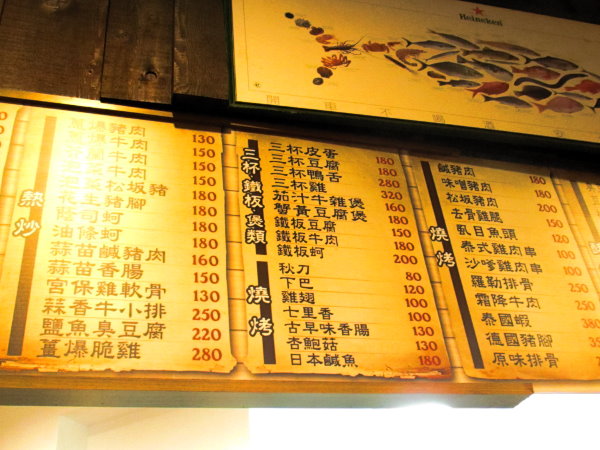 Heineken
熱炒
豬肉 130
牛肉 150
牛肉 150
牛肉 150
松坂豬 180
花生豬腳 180
蔭司蚵 180
油條蚵 180
蒜苗鹹豬肉 160
蒜苗香腸 150
宮保雞軟骨 130
蒜香牛小排 250
鹽魚臭豆腐 220
薑爆脆雞 280
三杯 鐵板 煲類
三杯皮蛋 180
三杯豆腐 180
三杯鴨舌 280
三杯雞 320
茄汁牛雜煲 160
蟹黃豆腐煲 180
鐵板豆腐 150
鐵板牛肉 180
鐵板蚵 200
燒烤
秋刀 80
下巴 120
雞翅 100
七里香 100
古早味香腸 130
杏鮑菇 130
日本鹹魚 180
燒烤
鹹豬肉
味噌豬肉 180
松坂豬肉 200
去骨雞腿 150
虱目魚頭 120
泰式雞肉串 100
沙嗲雞肉串 100
羅勒排骨 250
霜降牛肉 250
泰國蝦 380
德國豬腳
原味排骨